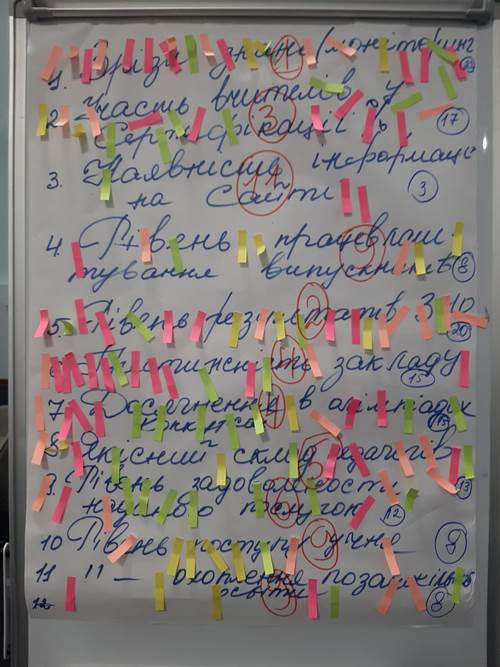 1. Зрізи знань/моніторинг 1
2. Участь вчителів у
Сертифікації 3 17
3. Наявність інформації
на сайті 11 3
4. Рівень працевлаш
тування випускників 9 8
5. Рівень результатів ЗНО 2 20
6. Престижність закладу 4 15
7. Досягнення в олімпіадах
конкурсах 4 15
8. Якісний склад вчителів 5
9. Рівень задоволеності 13
наданою послугою 6 12
10 Рівень поступу учнів 8
11 " — охоплення позашкільною
освіти 8
12